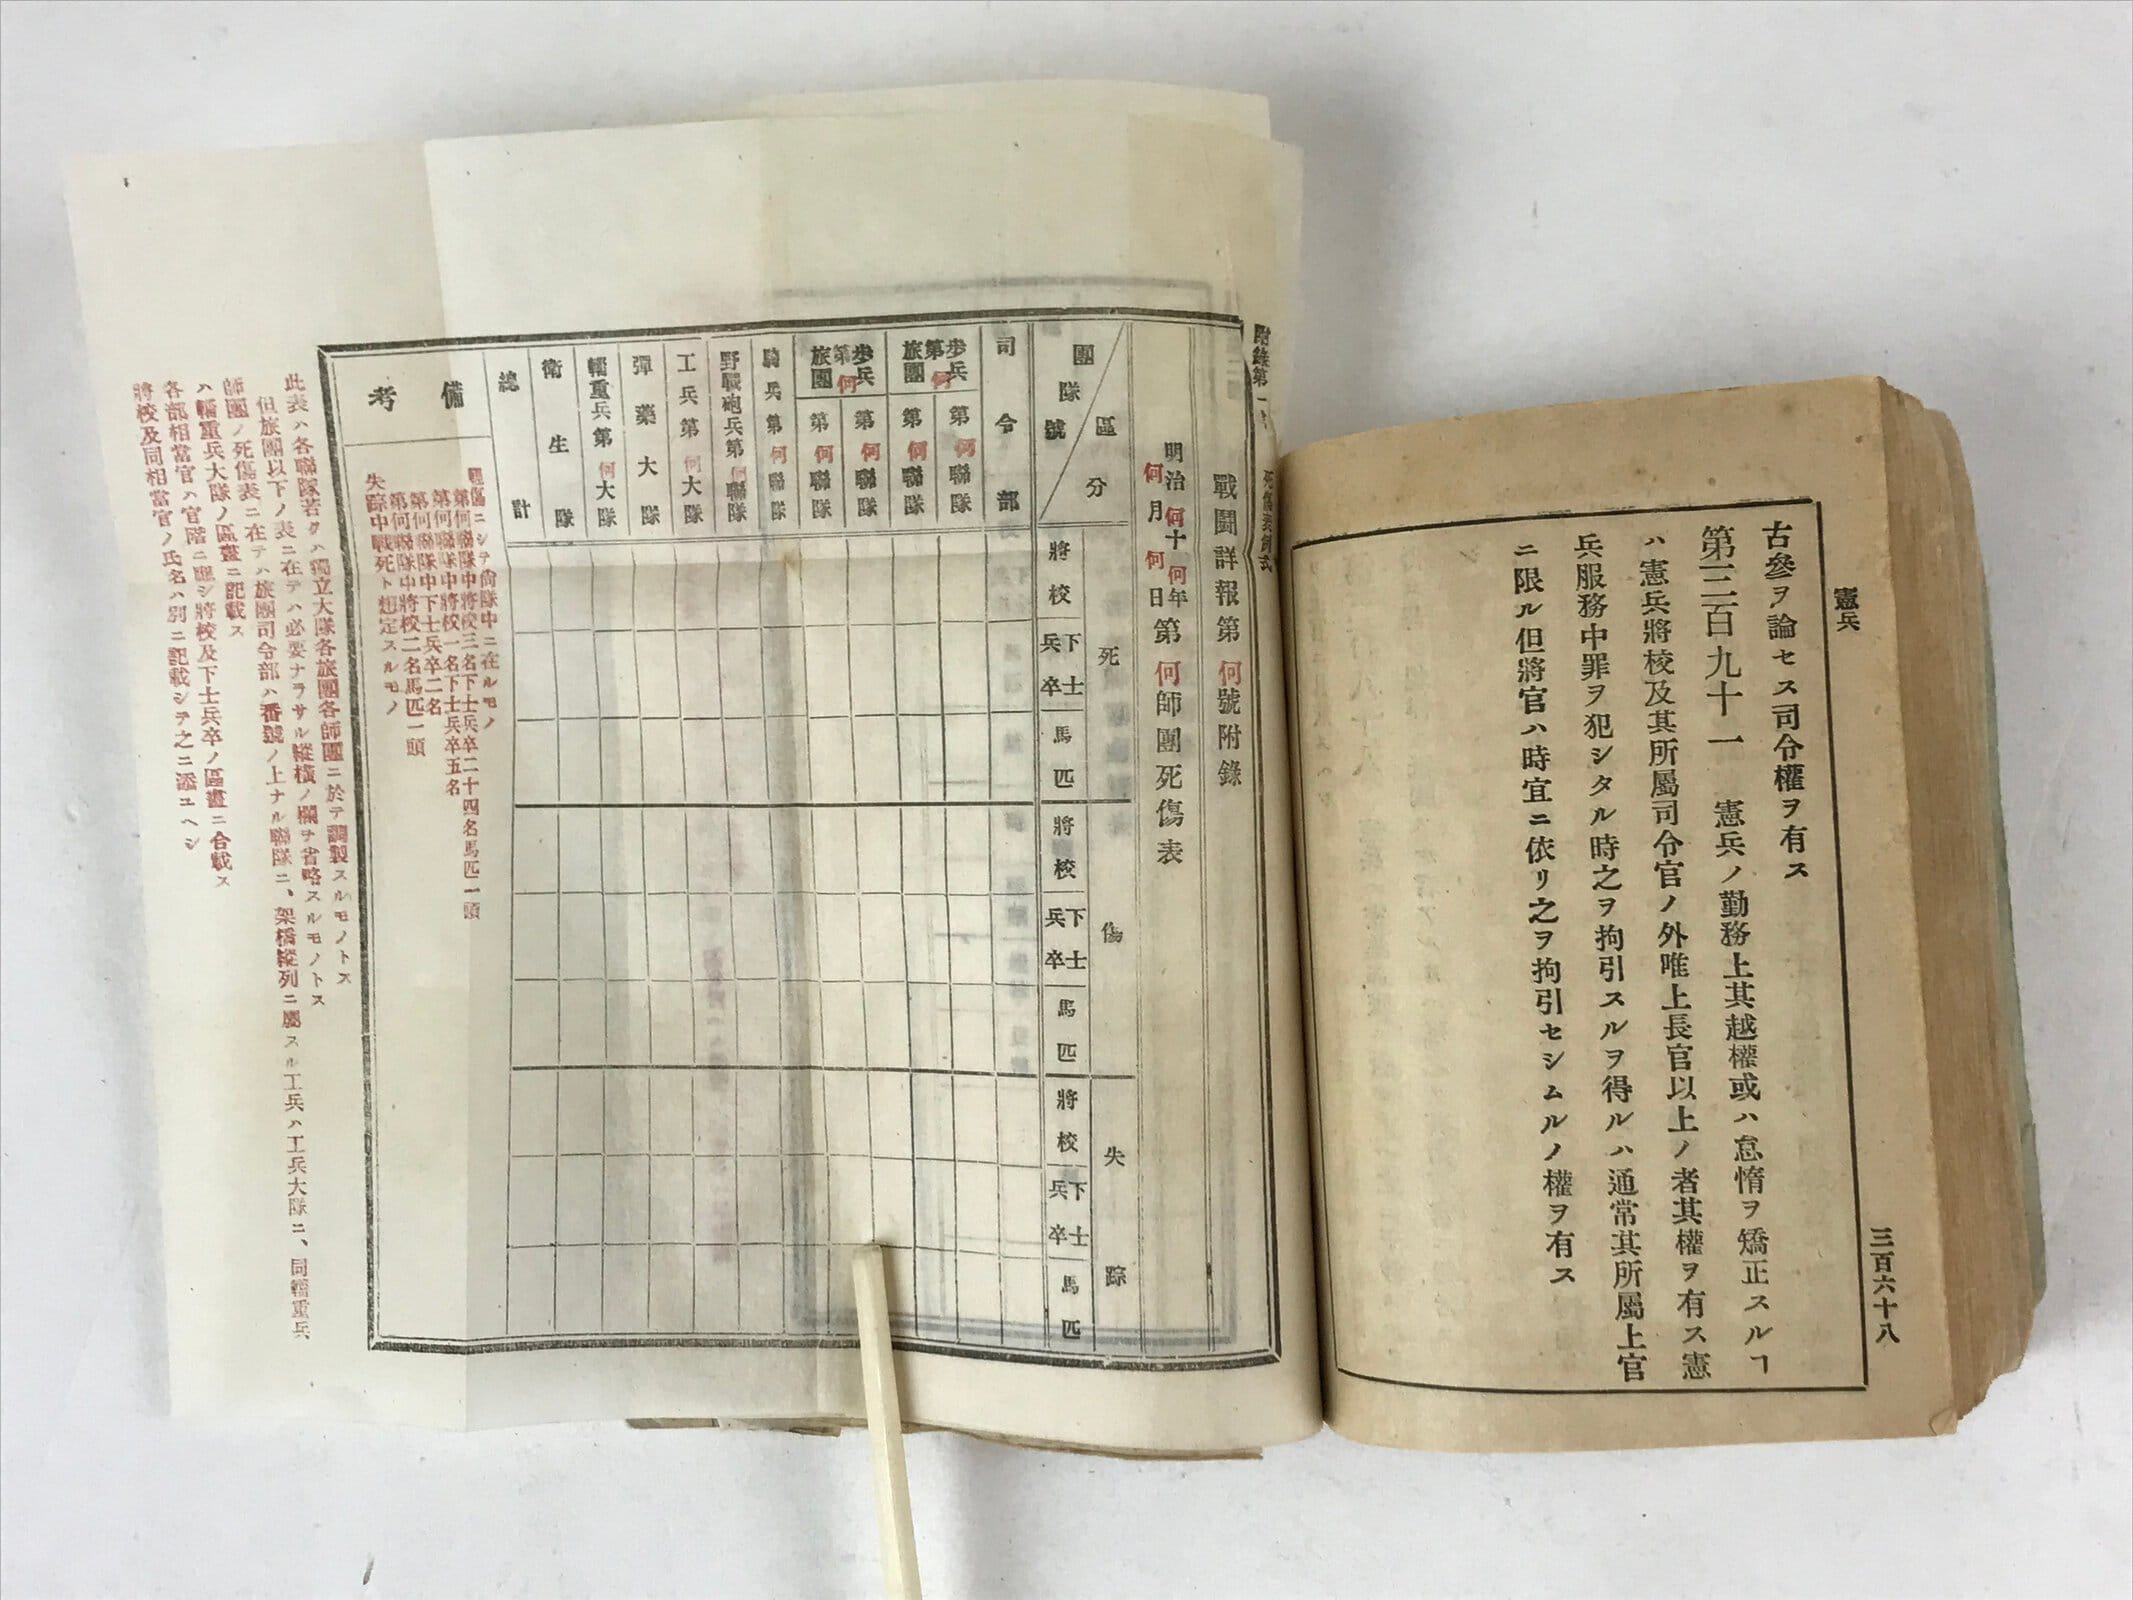 憲兵
三百六十八
古參ヲ論セス司令權ヲ有ス
第三百九十一　憲兵ノ勤務上其越權或ハ怠惰ヲ矯正スルヿ
ハ憲兵將校及其所屬司令官ノ外唯上長官以上ノ者其權ヲ有ス憲
兵服務中罪ヲ犯シタル時之ヲ拘引スルヲ得ルハ通常其所屬上官
ニ限ル但將官ハ時宜ニ依リ之ヲ拘引セシムルノ權ヲ有ス
附錄第一
戰鬪詳報第何號附錄
明治何十何年
何月何日
第何師團死傷表
團隊號
區分
死
將校
下士
兵卒
馬匹
傷
將校
下士
兵卒
馬匹
失踪
將校
下士
兵卒
馬匹
司令部
步兵
第何
旅團
第何聯隊
第何聯隊
步兵
第何
旅團
第何聯隊
第何聯隊
騎兵第何聯隊
野戰砲兵第何聯隊
工兵第何大隊
彈藥大隊
輜重兵第何大隊
衛生隊
總計
備考
輕傷ニシテ尙隊中ニ在ルモノ
第何聯隊中將校三名下士兵卒二十四名馬匹一頭
第何聯隊中將校一名下士兵卒五名
第何聯隊中下士兵卒二名
第何聯隊中將校二名馬匹一頭
失踪中戰死ト想定スルモノ
此表ハ各聯隊若クハ獨立大隊各旅團各師團ニ於テ調製スルモノトス
但旅團以下ノ表ニ在テハ必要ナラサル縱橫ノ欄ヲ省略スルモノトス
師團ノ死傷表ニ在テハ旅團司令部ハ番號ノ上ナル聯隊ニ、架橋縱列ニ屬スル工兵ハ工兵大隊ニ、同輜重兵
ハ輜重兵大隊ノ區畫ニ記載ス
各部相當官ハ官階ニ應シ將校及下士兵卒ノ區畫ニ合載ス
將校及同相當官ノ氏名ハ別ニ記載シテ之ニ添ユヘシ